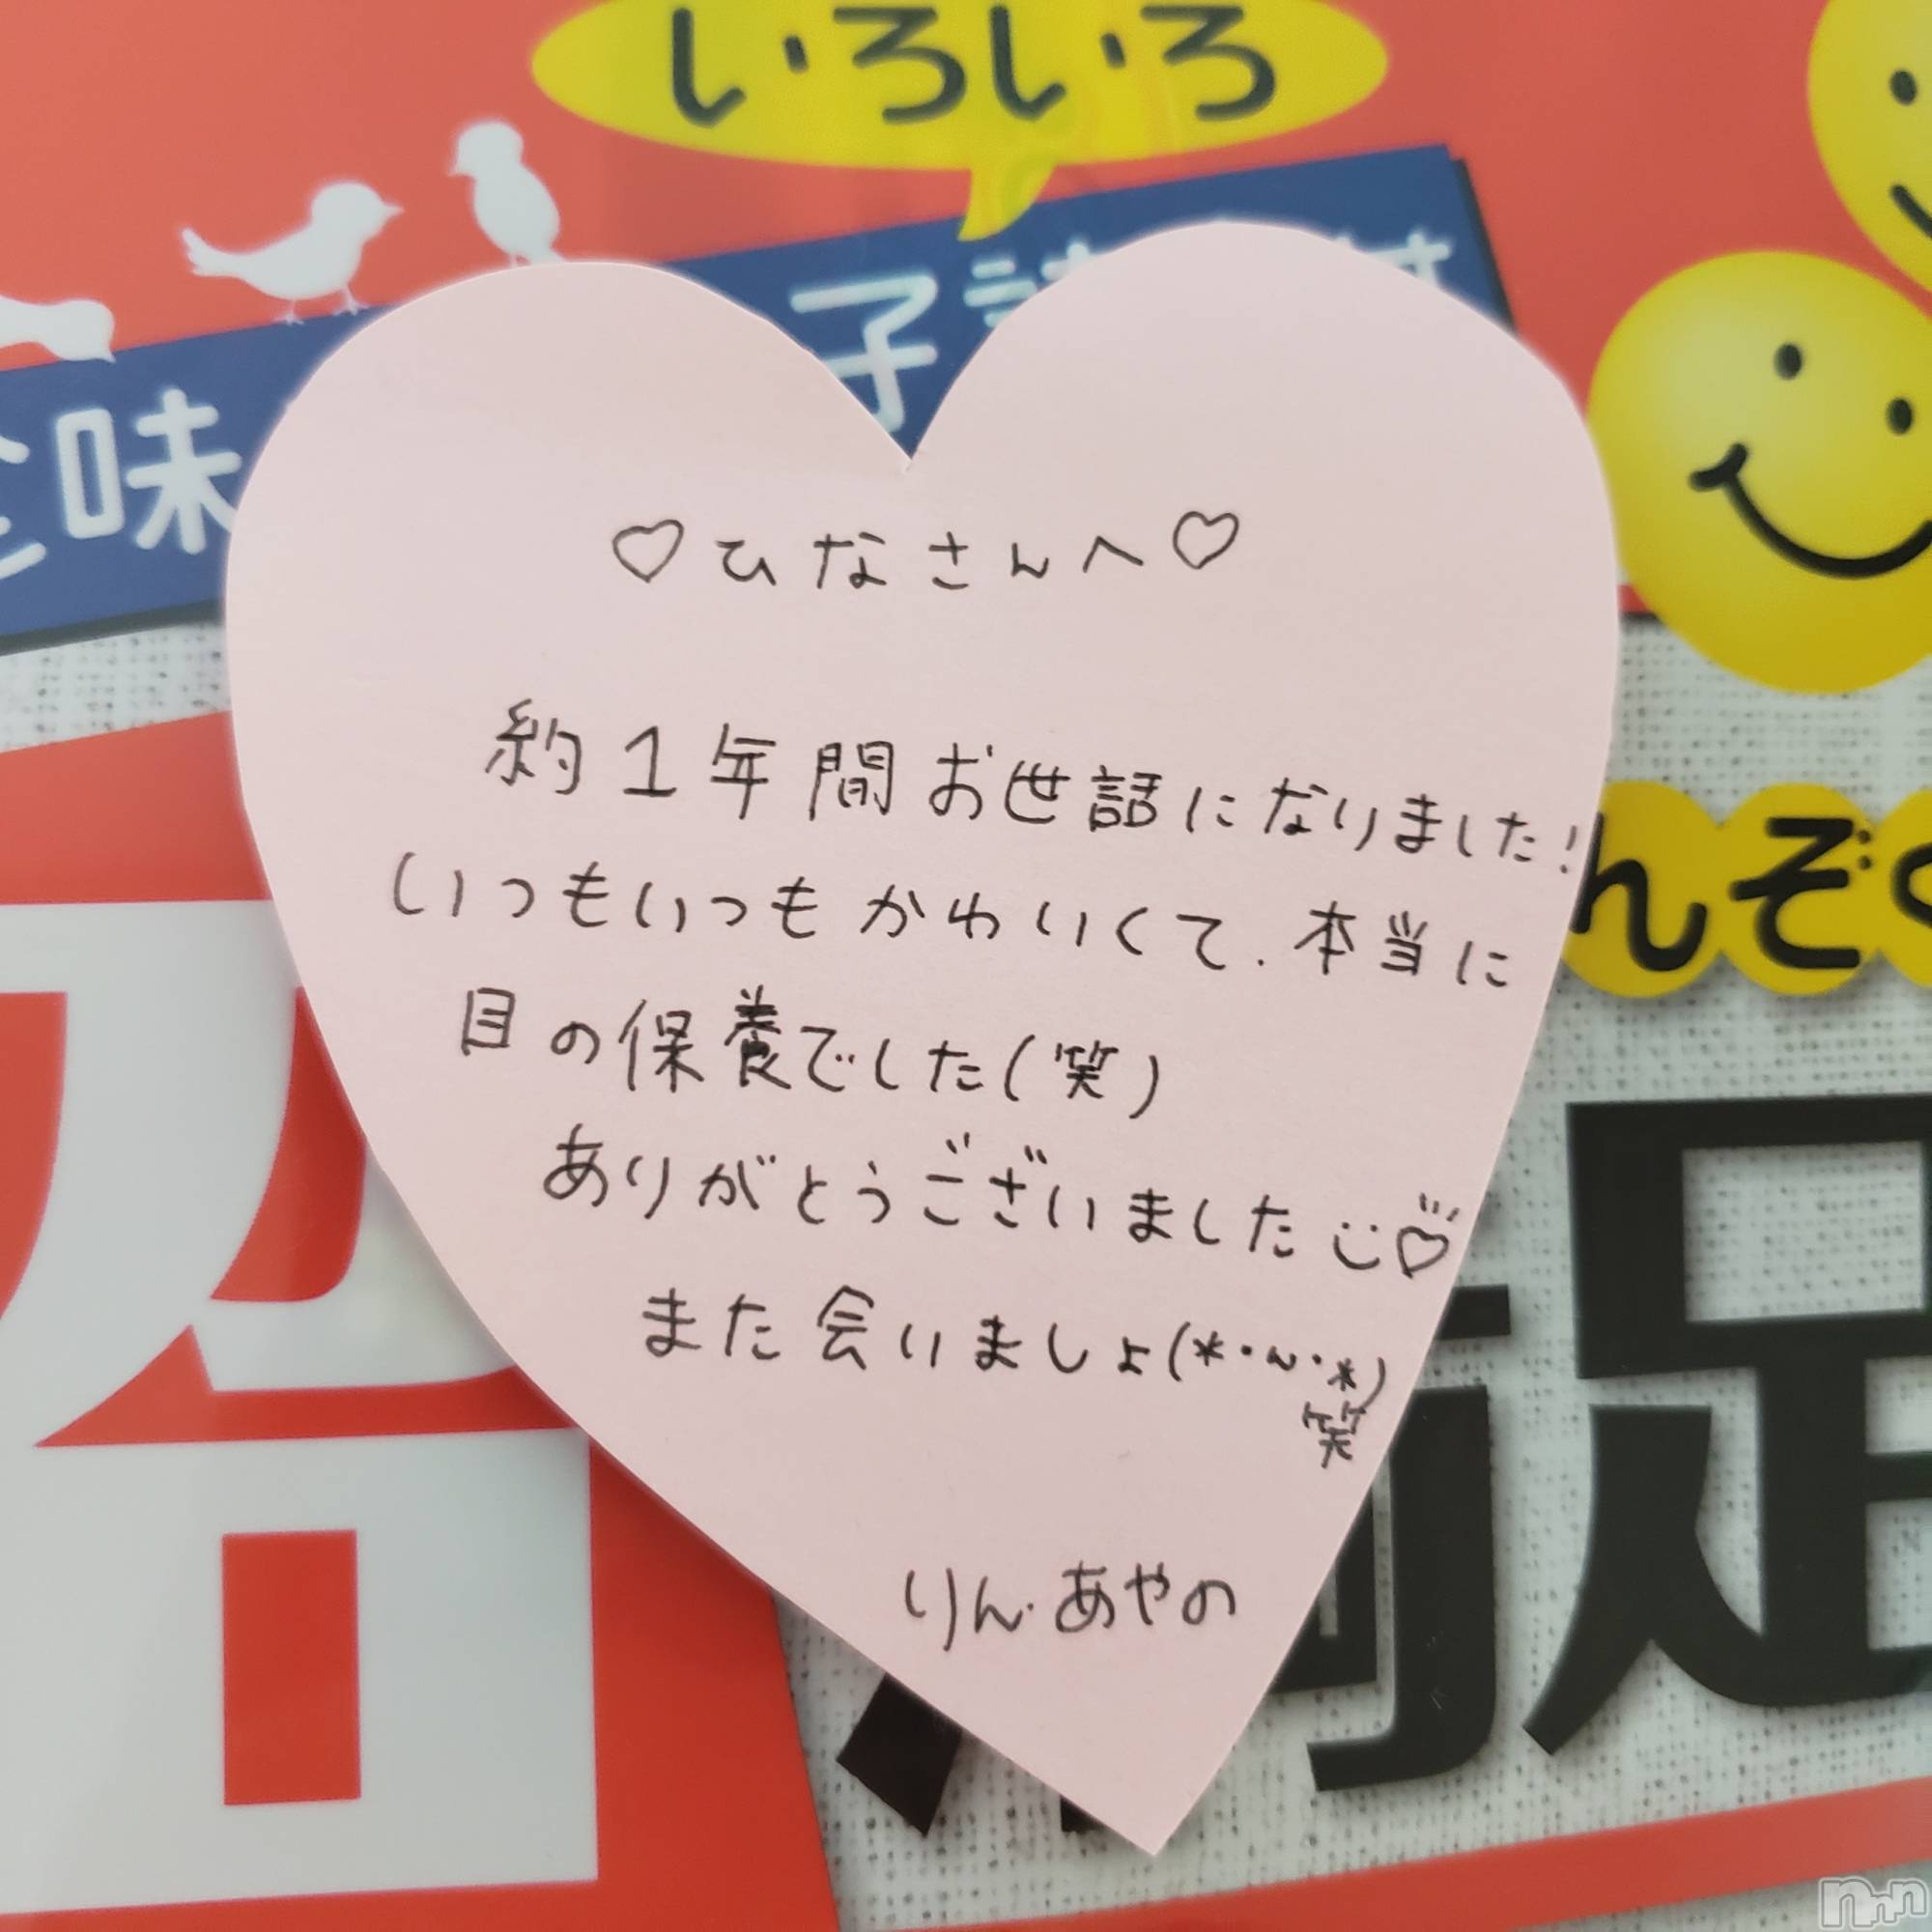 いろいろ
味
子
♡ひなさんへ♡
約1年間お世話になりました!
いつもいつもかわいくて、本当に
目の保養でした(笑)
ありがとうございました♡
また会いましょ(*・〜・*)
笑
りん・あやの
んぞ
足
nmn